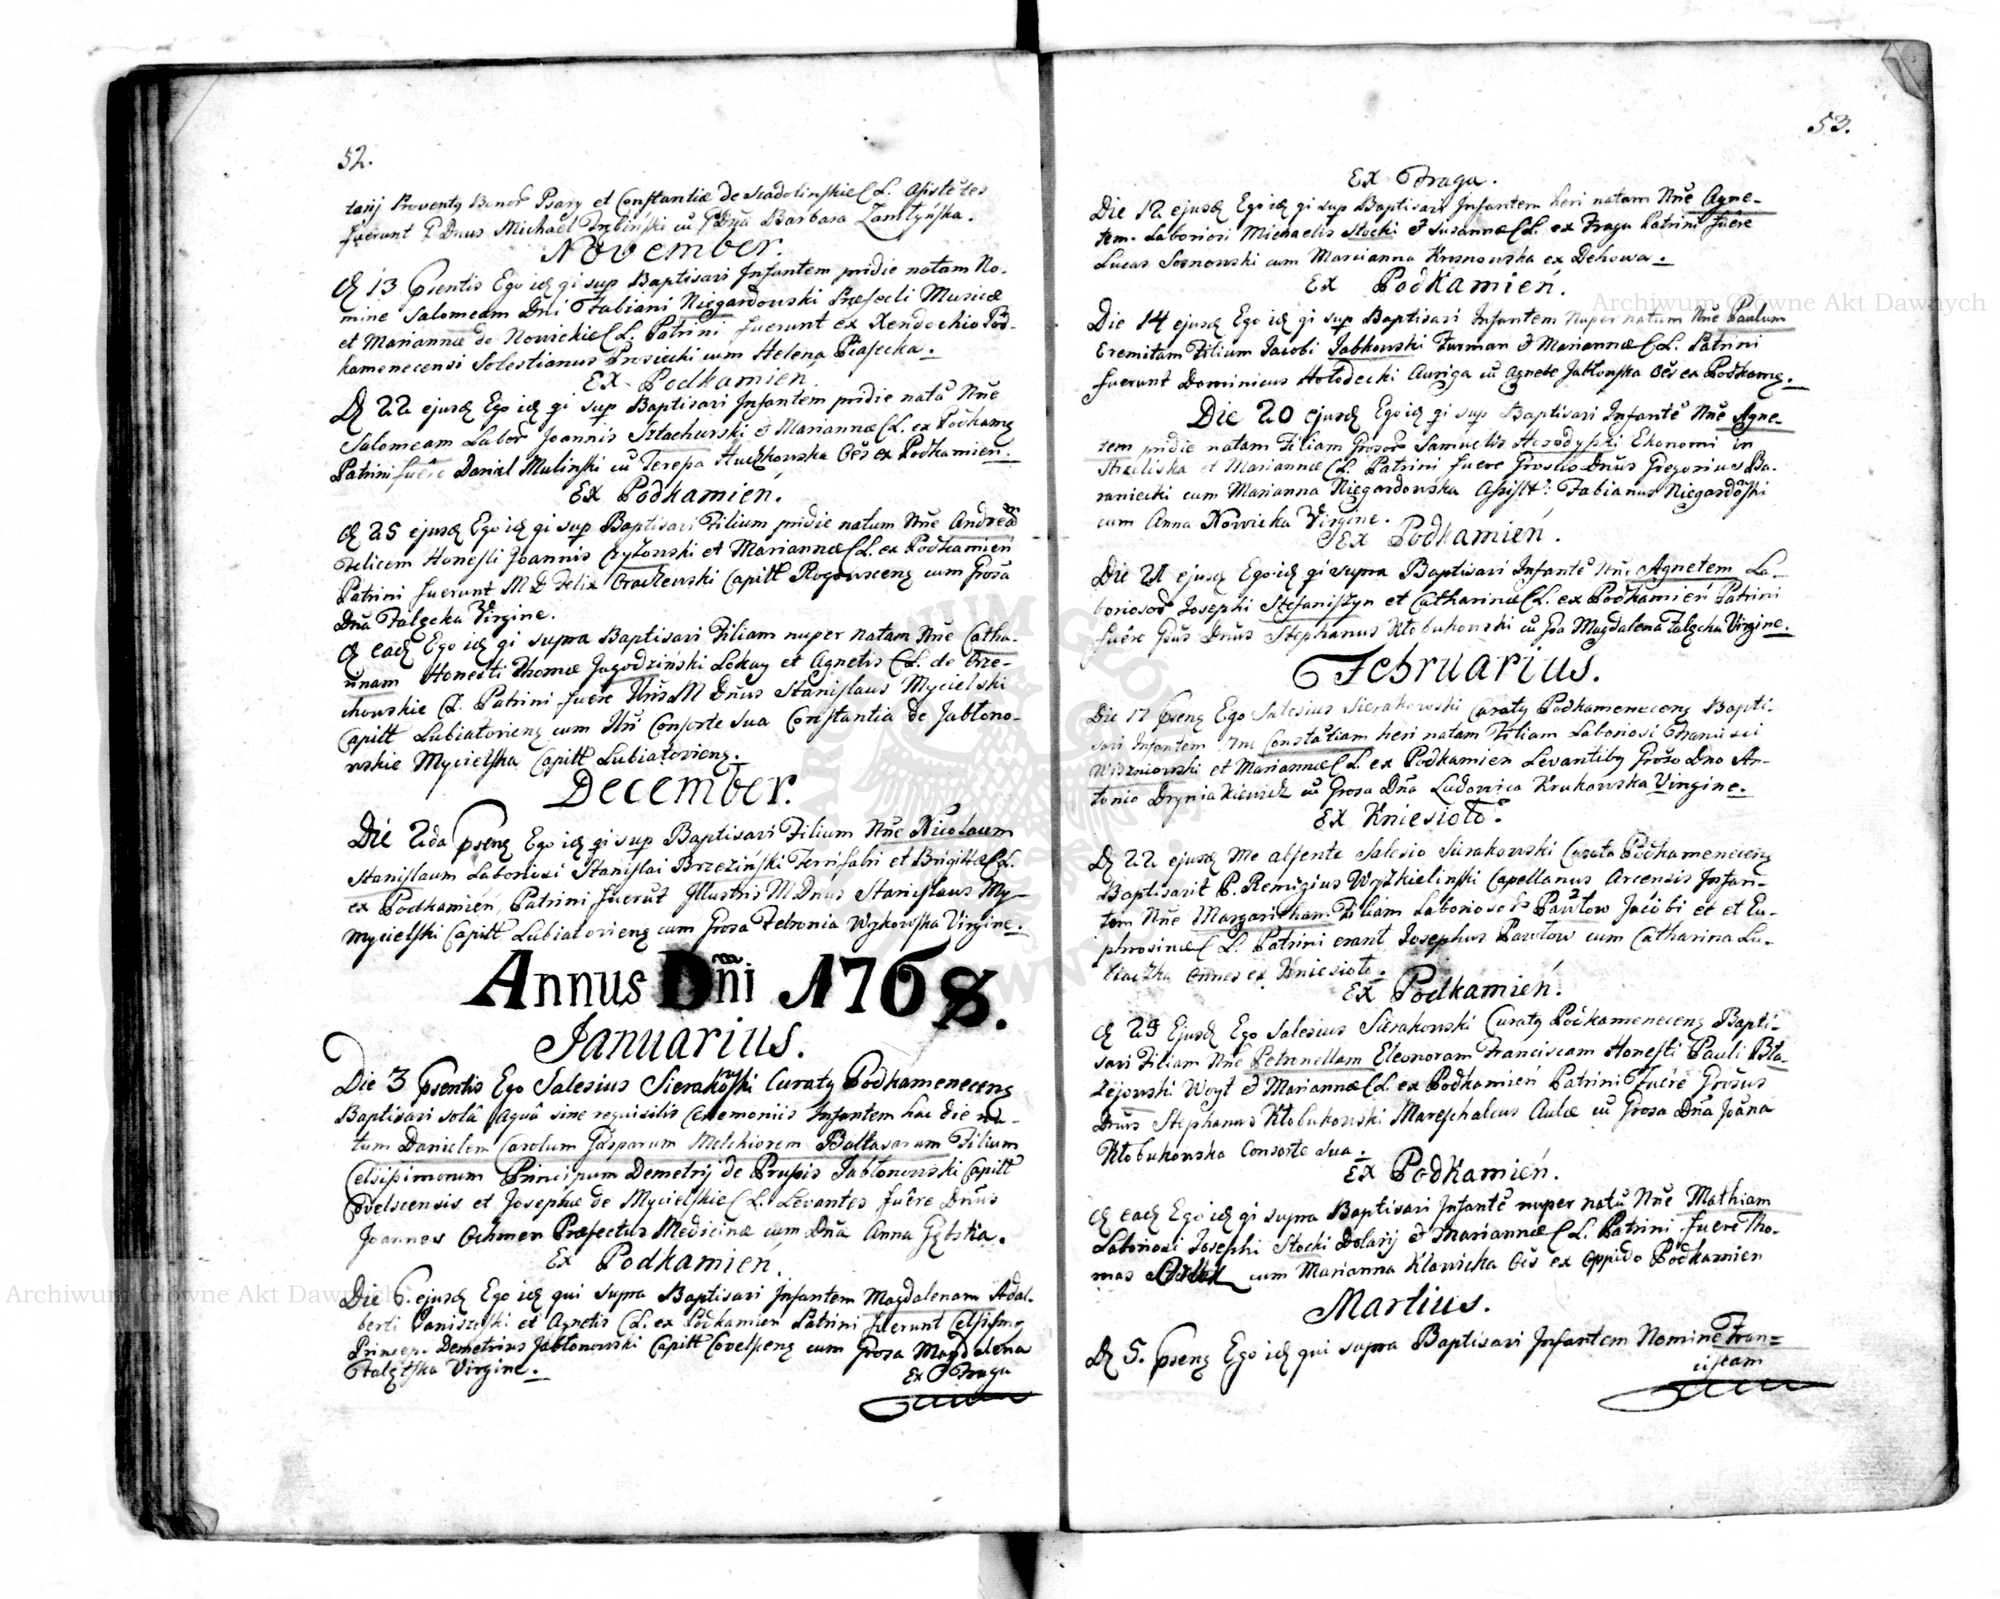 52.
tarij Proventꝯ Bonor Psary et Constantiæ de Stadolinskie C L. Assistetes
fuerunt G Dnus Michael Trębiński cũ G Dña Barbara Zamłyńska.
November.
D 13 Psentis Ego idꝫ qi sup Baptisavi Infantem pridie natam No-
mine Salomeam Dni Fabiani Niegardowski Præfecti Musicæ
et Mariannæ de Nowickie C L. Patrini fuerunt ex Xendochio Pod-
kamenecensi Solestianus Prosiecki cum Helena Piasecka.
Ex Podkamień.
D 22 ejusdꝫ Ego idꝫ qi sup Baptisavi Infantem pridie natã Nñe
Salomeam Labor Joannis Sztachurski & Mariannæ C L. ex Podkamꝫ
Patrini fuêre Daniel Mulinski cũ Teresa Huczkowska Oẽs ex Podkamien.
Ex Podkamień.
D 25 ejusdꝫ Ego idꝫ qi sup Baptisavi Filium pridie natum Nñe Andreã
Felicem Honesti Joannis Czyżowski et Mariannæ C L. ex Podkamień
Patrini fuerunt M D Felix Craczewski Capitł Rogowscenꝫ cum Grosa
Dña Falęcka Virgine.
D eadꝫ Ego idꝫ qi supra Baptisavi Filiam nuper natam Nñe Catha-
rinam Honesti Thomæ Jagodziński Lokay et Agnetis C L. de Orze-
chowskie C L. Patrini fuêre Illris M Dnus Stanislaus Mycielski
Capitł Lubiatoviens cum Illri Consorte sua Constantia de Jabłono-
wskie Mycielska Capitł Lubiatoviens.
December.
Die 2da Psens Ego idꝫ qi sup Baptisavi Filium Nñe Nicolaum
Stanislaum Laboriosi Stanislai Brzeziński Ferrifabri et Brigittæ C L.
ex Podkamień, Patrini fuerũt Illustris M. Dnus Stanislaus My-
Mycielski Capitł Lubiatoviens cum Grosa Petronia Wykowska Virgine.
Annus Dñi 1768.
Januarius.
Die 3 Psentis Ego Salesius Sierakowski Curatꝯ Podkamenecens
Baptisavi solâ Aquâ sine requisitis Ceremoniis Infantem hac die na-
tum Danielem Carolum Gasparum Melchiorem Baltasarum Filium
Celsissimorum Principum Demetrij de Prussis Jabłonowski Capitł
Covelscensis et Josephæ de Mycielskie C L. Levantes fuêre Dnus
Joannes Ochmen Præfectus Medicinæ cum Dña Anna Gębska.
Ex Podkamień.
Die 6. ejusdꝫ Ego idꝫ qui supra Baptisavi Infantem Magdalenam Adal-
berti Paniszeski et Agnetis C L. ex Podkamien Patrini fuerunt Celsissimꝯ
Princep. Demetrius Jabłonowski Capitł Covelsens cum Grosa Magdalena
Falętska Virgine.
Ex Fraga
53.
Ex Fraga.
Die 12 ejusdꝫ Ego idꝫ qi sup Baptisavi Infantem heri natam Nñe Agne-
tem. Laboriosi Michaelis Stocki & Susannæ C L. ex Fraga Patrini fuêre
Lucas Sosnowski cum Marianna Krasnowska ex Dehowa.
Ex Podkamień.
Die 14 ejusdꝫ Ego idꝫ qi sup Baptisavi Infantem nuper natum Nñe Paulum
Eremitam Filium Jacobi Jabkowski Furman & Mariannæ C L. Patrini
fuerunt Dominicus Hołodecki Auriga cũ Agnete Jabłonska Oẽs ex Podkamꝫ.
Die 20 ejusdꝫ Ego idꝫ qi sup Baptisavi Infantẽ Nñe Agne-
tem pridie natam Filiam Grosor Samuelis Horodyski Ekonomi in
Strzeliska et Mariannæ C L. Patrini fuere Grosus Dnus Gregorius Ba-
raniecki cum Marianna Niegardowska Assist: Fabianus Niegardowski
cum Anna Nowicka Virgine.
Ex Podkamień.
Die 21 ejusdꝫ Ego idꝫ qi supra Baptisavi Infantẽ Nñe Agnetem La-
boriosor Josephi Stefaniszyn et Catharinæ C L. ex Podkamień Patrini
fuêre Gsus Dnus Stephanus Kłobukowski cũ Gsa Magdalena Falęcka Virgine.
Februarius.
Die 17 Psens Ego Salesius Sierakowski Curatꝯ Podkamenecens Bapti-
savi Infantem Nñe Constãtiam heri natam Filiam Laboriosi Francisci
Wiszniowski et Mariannæ C L. ex Podkamien Levantibꝯ Groso Dno An-
tonio Dryniakiewicz cũ Grosa Dña Ludovica Krukowska Virgine.
Ex Kniesioło.
D 22 ejusdꝫ Me absente Salesio Sierakowski Curato Podkamenecens
Baptisavit P. Remigius Woyskielinski Capellanus Arcensis Infan-
tem Nñe Margaritham Filiam Laboriosor Pawłow Jacobi et et Eu-
phrosinæ C L. Patrini erant Josephus Pawłow cum Catharina Lu-
Omnes ex Kniesioło.
Ex Podkamień.
D 29 Ejusdꝫ Ego Salesius Sierakowski Curatꝯ Podkamenecens Bapti-
savi Filiam Nñe Petronellam Eleonoram Franciscam Honesti Pauli Bła-
żejowski Woyt & Mariannæ C L. ex Podkamień Patrini fuêre Grosus
Dnus Stephanus Kłobukowski Mareschalcus Aulæ cũ Grosa Dña Joãna
Kłobukowska Consorte sua.
Ex Podkamień.
D eadꝫ Ego idꝫ qi supra Baptisavi Infantẽ nuper natũ Nñe Mathiam
Laboriosi Josephi Stocki Dolarij & Mariannæ C L. Patrini fuêre Tho-
mas cum Marianna Klawicka Oẽs ex oppido Podkamien
Martius.
D 5. Psens Ego idꝫ qui supra Baptisavi Infantem Nomine Fran-
ciscam
Archiwum Główne Akt Dawnych
Archiwum Główne Akt Dawnych